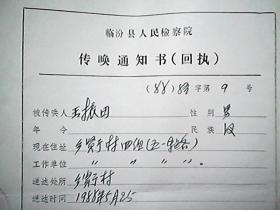 临汾县人民检察院
传唤通知书(回执)
(88)字第9号
被传唤人 王振田 性别 男
年令 民族 汉
现在住址 乡贤村四组
工作单位 〃 〃 〃 〃
送达处所 乡贤村
送达时间 1988年5月25